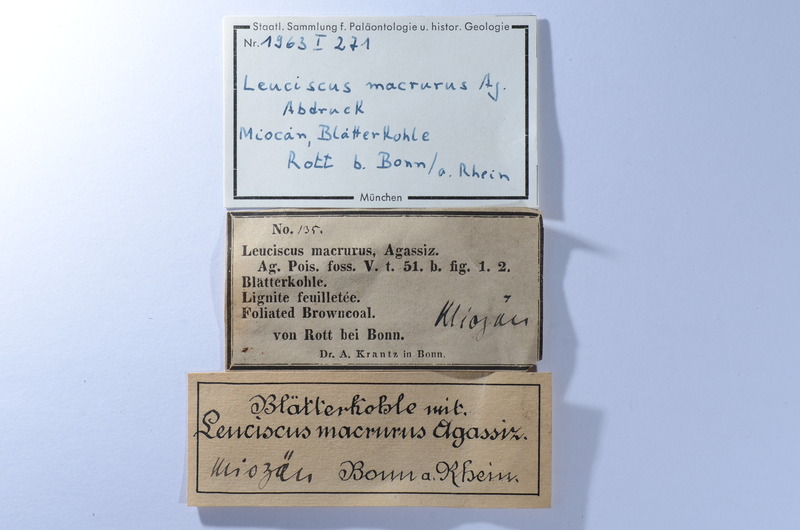 Staatl. Sammlung f. Paläontologie u. histor. Geologie
Nr. 1963 I 271
Leuciscus macrurus Ag.
Abdruck
Miocän, Blätterkohle
Rott b. Bonn/a. Rhein
München
No. 135.
Leuciscus macrurus, Agassiz.
Ag. Pois. foss. V. t. 51. b. fig. 1. 2.
Blätterkohle.
Lignite feuilletée.
Foliated Browncoal.
Miozän
von Rott bei Bonn.
Dr. A. Krantz in Bonn.
Blätterkohle mit.
Leuciscus macrurus Agassiz.
Miozän Bonn a. Rhein.